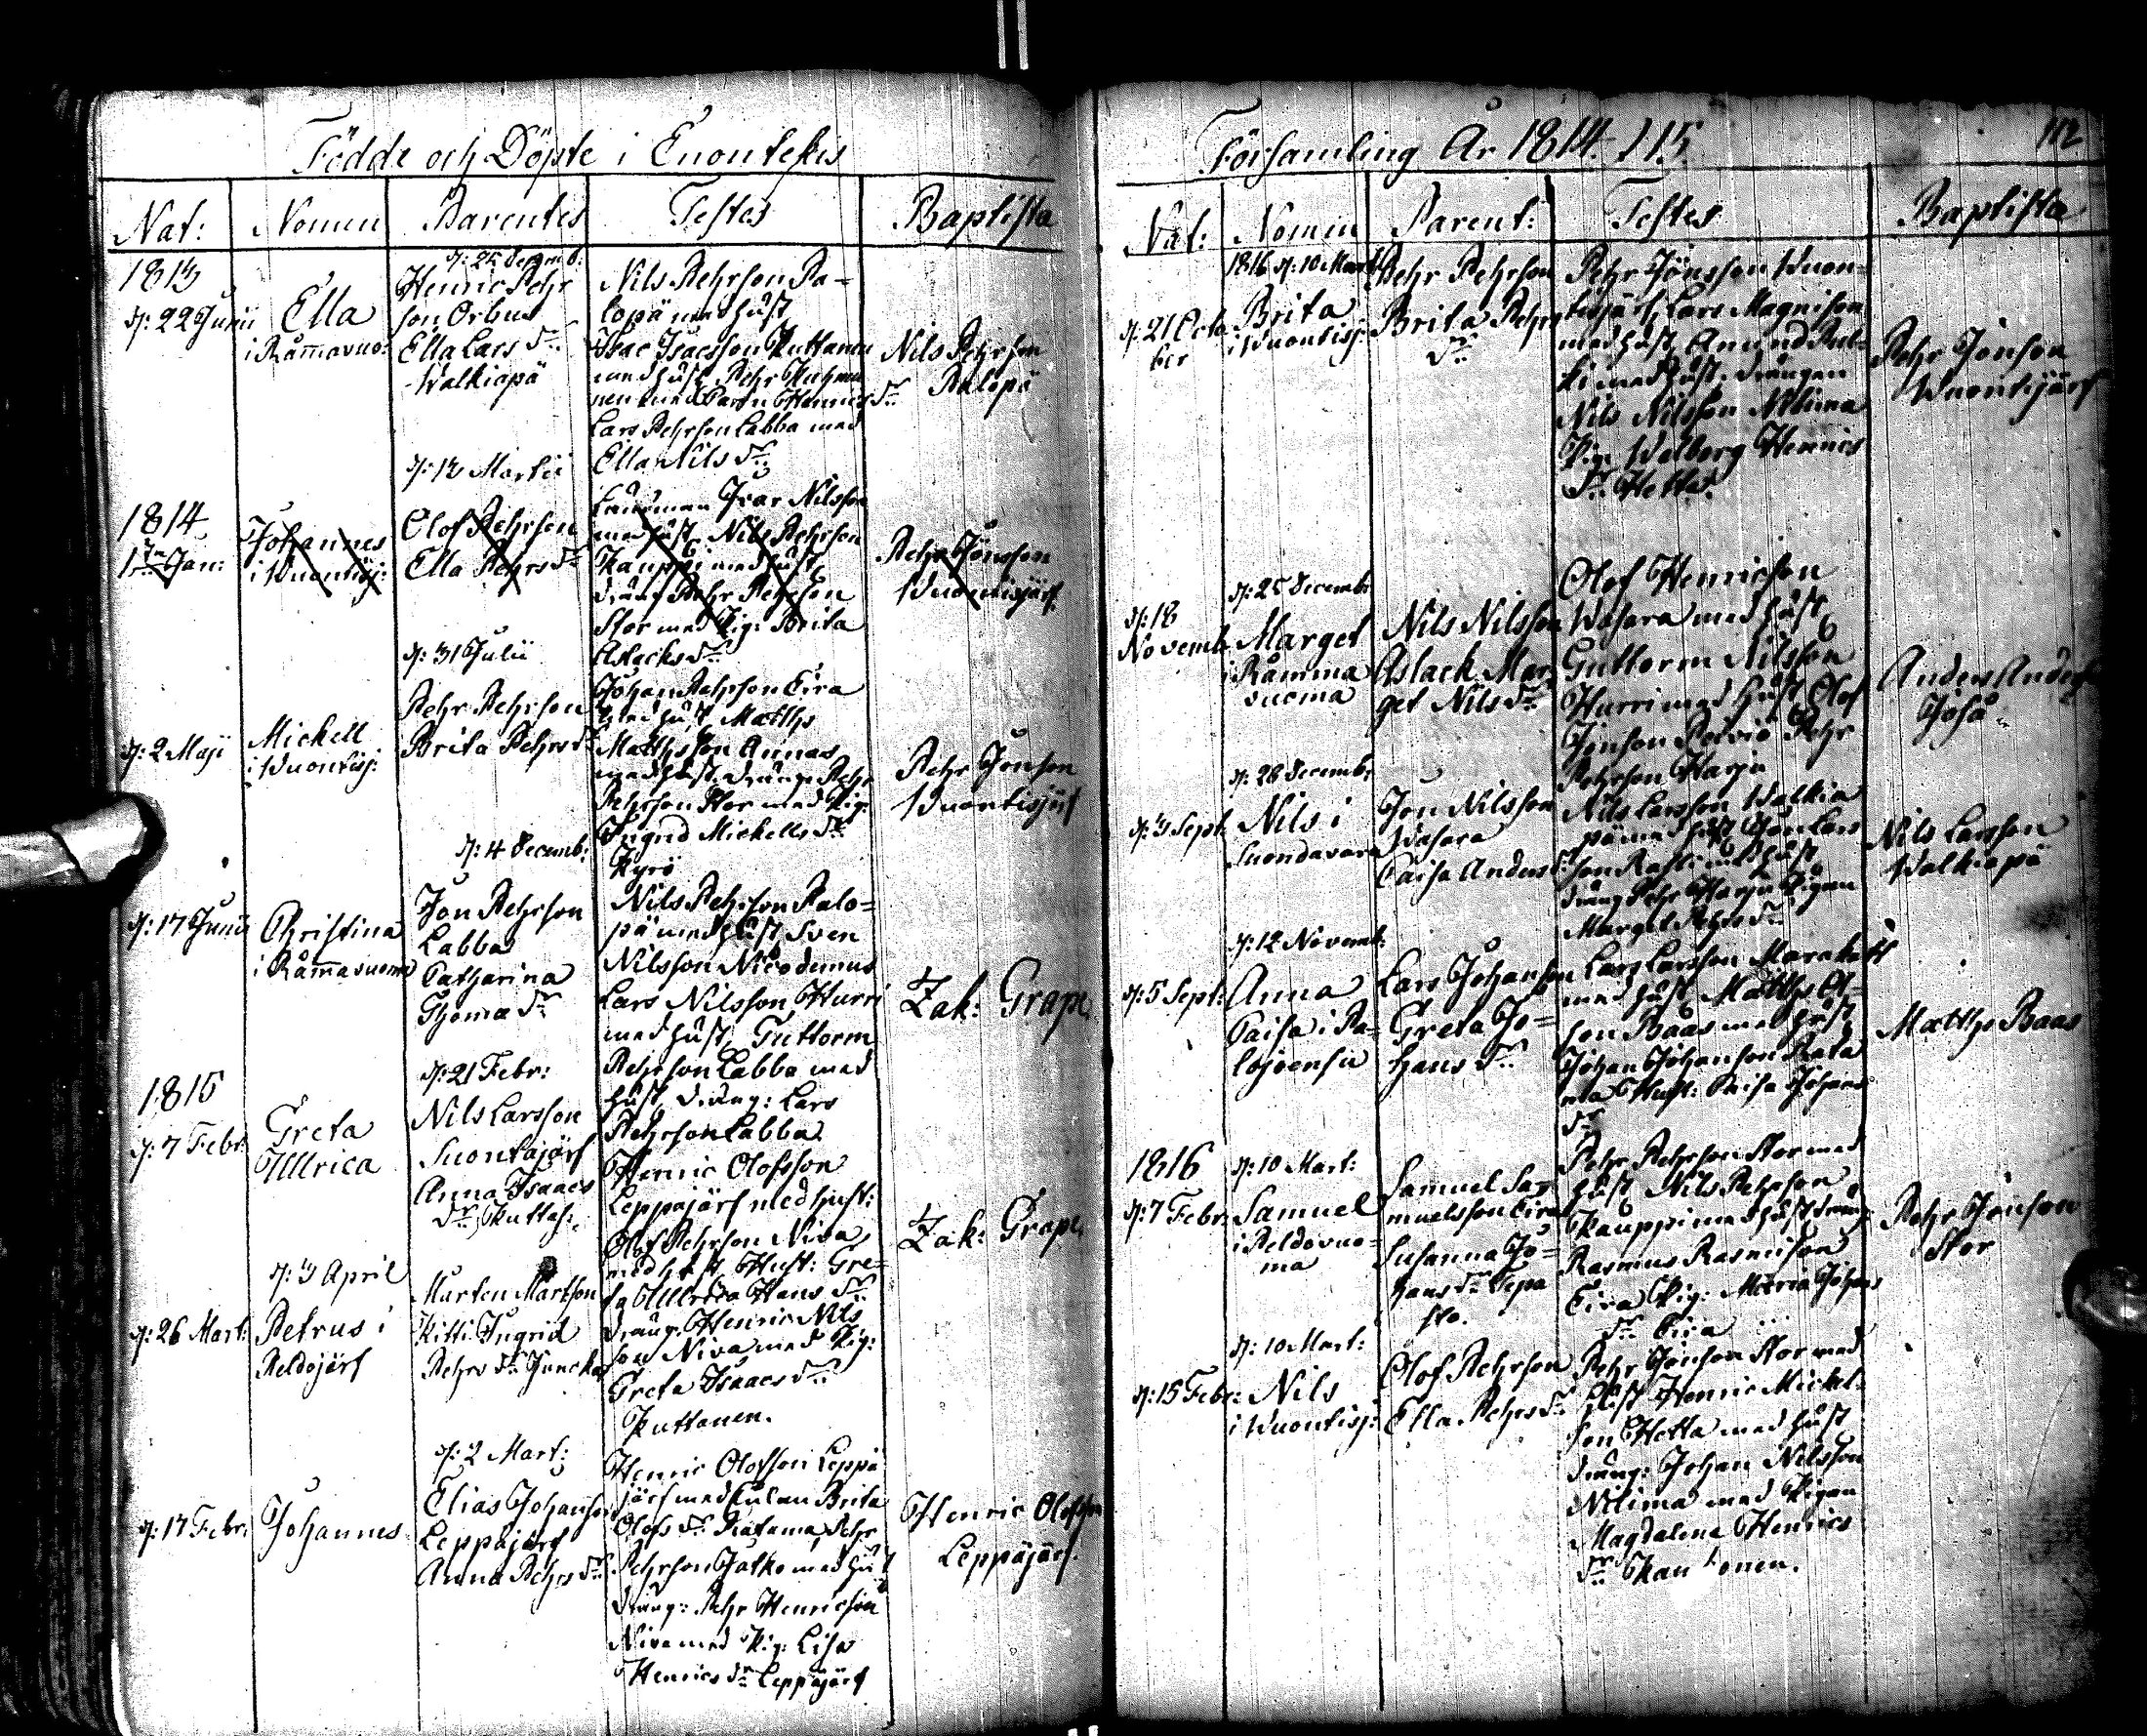 Födde och Döpte i Enontekis
Nat: Nomen Parentes Testes Baptista
1813
d: 22 Junii
Ella
i Råmavuo:
d: 25 Decemb:
Henric Pehr
son Orbus
Ella Lars dr
Walkiapä
Nils Pehrson Pa-
lopä med hust
Isac Isacsson Kuttanen
med hust, Pehr
Lars Pehrson Labba med
Ella Nils dr
Nils Pehrson
Palopä
1814
1 Jan:
Johannes
i Wuontisj:
d: 13 Martii
Olof Pehrson
Ella Pehrs dr
Länsman Ivar Nilsson
med hust, Nils Pehrson
Kauppi med hust,
dräng Pehr Pehrson
Stor med Pig: Brita
Aslacks dr
Pehr Jönsson
Wuontisjärf
d: 2 Maji
Michell
i Wuontisj:
d: 31 Julii
Pehr Pehrson
Brita Pehrs dr
Johan Pehrson Eira
med hust, Matths
Matthsson Annas
med hust, dräng Pehr
Pehrson Stor med Pig:
Ingrid Michells dr
Kyrö
Pehr Jonson
Wuontisjärf
d: 17 Junii
Christina
i Råmavuoma
d: 4 Decemb:
Jon Pehrson
Labba
Catharina
Thoma dr
Nils Pehrson Palo=
pä med hust Sven
Nilsson Nicodemus
Lars Nilsson Hurri
med hust, Guttorm
Pehrson Labba med
hust, dräng: Lars
Pehrson Labba
Zak: Grape
1815
d: 7 Febr:
Greta
Ullrica
d: 21 Febr:
Nils Larsson
Suontajärf
Anna Isaacs
dr, Kuttas:
Henric Olofsson
Leppäjärf med hust:
Olof Pehrson Niva
med hust, Hust: Gre=
ta Ullrica Hans dr
dräng: Henric Nils
son Niva med Pig:
Greta Isaacs dr
Kuttanen.
Zak: Grape
d: 26 Mart:
d: 3 April
Petrus i
Peldojärf
Mårten Mårtson
Kitti Ingrid
Pehrs dr Juncka
d: 17 Febr:
Johannes
d: 2 Mart:
Elias Johanson
Leppäjärf
Anna Pehrs dr
Henric Olofsson Leppä
järf med Brita
Olofs dr Ratama Pehr
Pehrson Jatko med hust
dräng: Pehr Henricson
Niva med Pig: Lisa
Henrics dr Leppäjärf
Henric Olofson
Leppäjärf.
Församling År 1814. 15
112
Nat: Nomin Parent: Testes Baptista
d: 21 Octo
ber
1816 d: 10 Mart
Brita
i Wuontisj:
Pehr Pehrson
Brita Pehrs
dr
Pehr Jönsson Wuon=
tisjärf, Lars Magnison
med hust, Amund
med hust, drängen
Nils Nilsson Nilima
Pig: Walborg Henrics
dr Hetta.
Pehr Jonson
Wuontisjärf
d: 18
Novemb:
d: 25 Decemb:
Marget
i Råmma
vuoma
Nils Nilsson
Aslack Mar
get Nils dr
Olof Henricson
Wasara med hust
Guttorm Nilsson
Hurri med hust Olof
Jönson Pehr
Pehrson Harju
Anders Anders
d: 3 Sept:
d: 28 Decemb:
Nils i
Suondavara
Jon Nilsson
Wasara
Caisa Anders d:
Nils Larsson Walkia
pä med hust Jon Lars
son med hust
dräng Pehr Harju Pigan
Marget Pehrs dr
Nils Larsson
Walkiapä
d: 5 Sept:
d: 12 Novemb:
Anna
Caisa i Pa=
lojoensu
Lars Johanson
Greta Jo=
hans dr
Lars Larsson
med hust, Matths Ol=
son Baas med hust
Johan Johanson Rata
ma Hust: Johans
dr
Matths Baas
1816
d: 7 Febr:
d: 10 Mart:
Samuel
i Peldovuo=
ma
Samuel Sa=
muelsson Eira
Susanna Jo=
hans dr Sepa
Pehr Pehrson Stor med
hust Nils Pehrson
Kauppi med hust dräng:
Rasmus Rasmuson
Eira Pig: Maria Johans
dr Eira
Pehr Jonson
Stor
d: 15 Febr:
d: 10 Mart:
Nils
i Wuontisj:
Olof Pehrson
Ella Pehrs dr
Pehr Jonson Stor med
hust, Henric Michel
son Hetta med hust
dräng: Johan Nilsson
Nilima med Pigan
Magdalena Henrics
dr